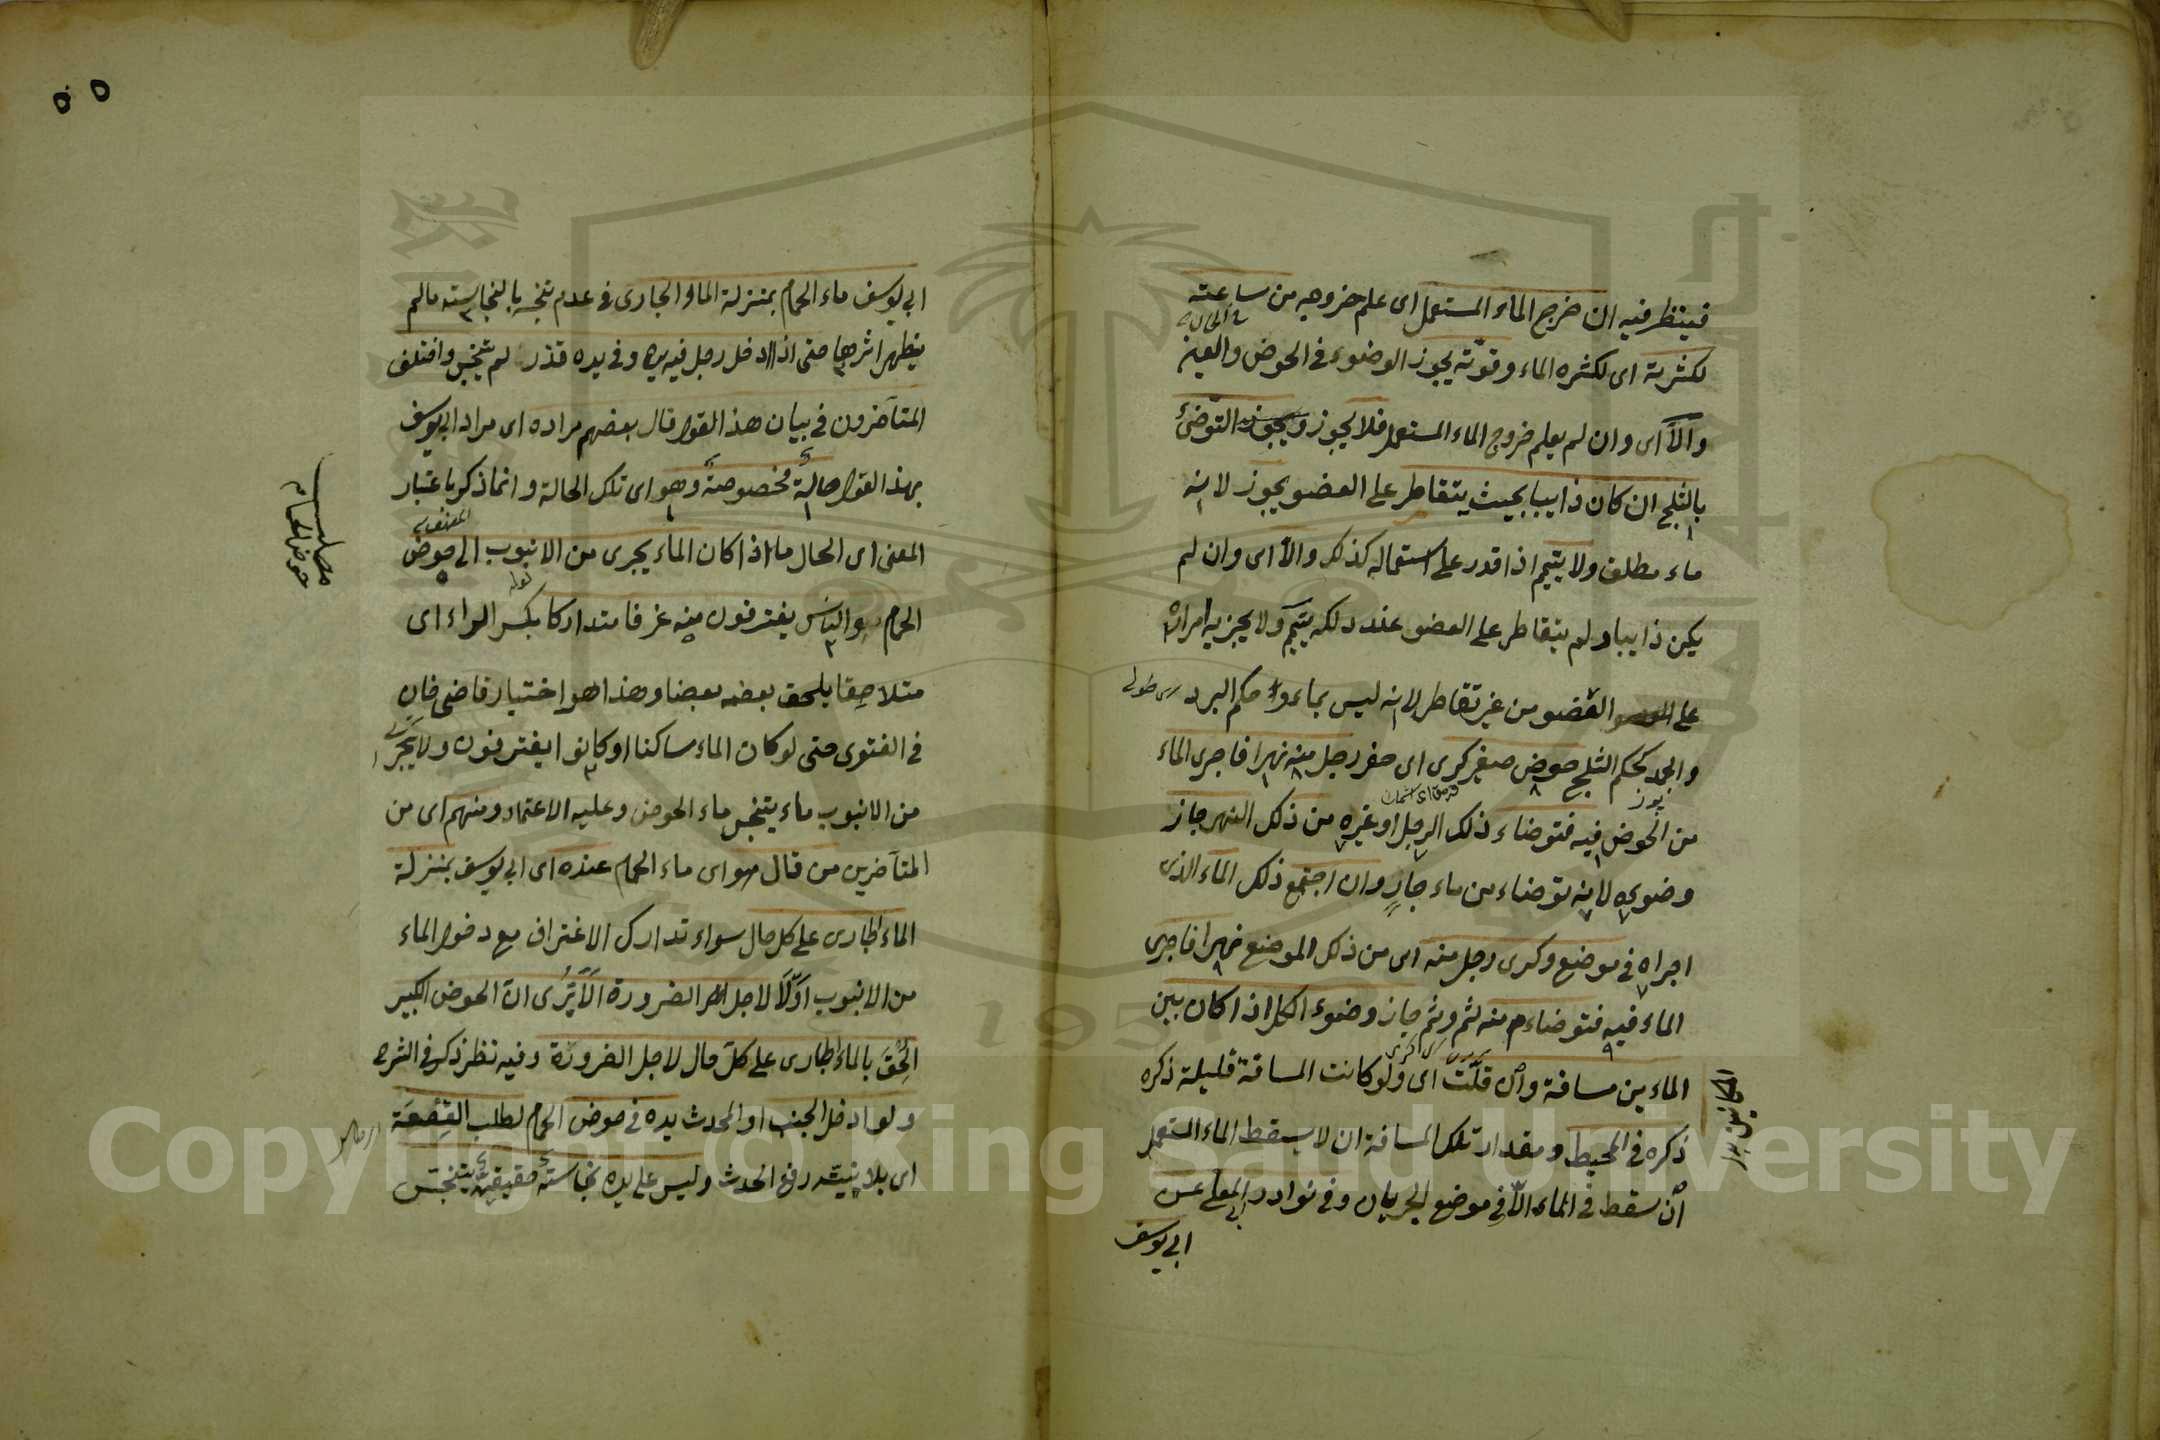 فينظر فيه ان خرج الماء المستعمل اى علم خروجه من ساعته
لكثرته اى لكثره الماء وقوته يجوز الوضوء فى الحوض والعين
والا اى وان لم يعلم خروج الماء المستعمل فلا يجوز التوضئ
بالثلج ان كان ذايبا بحيث يتقاطر على العضو يجوز لانه
ماء مطلق ولا يتيمم اذا قدر على استعماله كذلك والا اى وان لم
يكن ذايبا ولم يتقاطر على العضو عند دلكه يتيمم ولا يجزيه امراره
على العضو من غير تقاطر لانه ليس بماء و حكم البرد
والجمد كحكم الثلج حوض صغير كرى اى حفر رجل منه نهرا فاجرى الماء
من الحوض فيه فتوضاء ذلك الرجل او غيره من ذلك النهر جاز
وضوءه لانه توضاء من ماء جارٍ وان اجتمع ذلك الماء الذى
اجراه فى موضع وكرى رجل منه اى من ذلك الموضع نهرا فاجرى
الماء فيه فتوضاء منه ثم وثم جاز وضوء الكل اذا كان بين
الماءين مسافة وان قلّت اى ولو كانت المسافة قليلة ذكره
ذكره فى المحيط ومقدار تلك المسافة ان لا يسقط الماء المستعمل
ان سقط فى الماء الا فى موضع الجريان وفى نوادر المعلى عن
ابى يوسف
المكانين
٥٥
ابى يوسف ماء الحمام بمنزلة الماء الجارى فى عدم تنجسه بالنجاسته مالم
يظهر اثرها حتى اذا ادخل رجل فيه يده وفى يده قذر لم يتنجس واختلف
المتأخرون فى بيان هذا القول قال بعضهم مراده اى مراد ابى يوسف
بهذا القول حالة مخصوصة وهو اى تلك الحالة وانما ذكر باعتبار
المعنى اى الحال ما اذا كان الماء يجرى من الانبوب الى حوض
الحمام والناس يغترفون منه غرفا متداركا بكسر الراء اى
متلاصقا يلحق بعضه بعضا وهذا هو اختيار قاضى خان
فى الفتوى حتى لو كان الماء ساكنا او كانوا يغترفون ولا يجرى
من الانبوب ماء يتنجس ماء الحوض وعليه الاعتماد ومنهم اى من
المتأخرين من قال هو اى ماء الحمام عنده اى ابى يوسف بمنزلة
الماء الجارى على كل حال سواء تدارك الاغتراف مع دخول الماء
من الانبوب اولا لاجل الضرورة الا يرى ان الحوض الكبير
الحق بالماء الجارى على كل حال لاجل الضرورة وفيه نظر ذكر فى الشرح
ولو ادخل الجنب او المحدث يده فى حوض الحمام لطلب القصعة
اى بلا نيت رفع الحدث وليس على يده نجاسة حقيقية يتنجس
مطلب
حوض الحمام